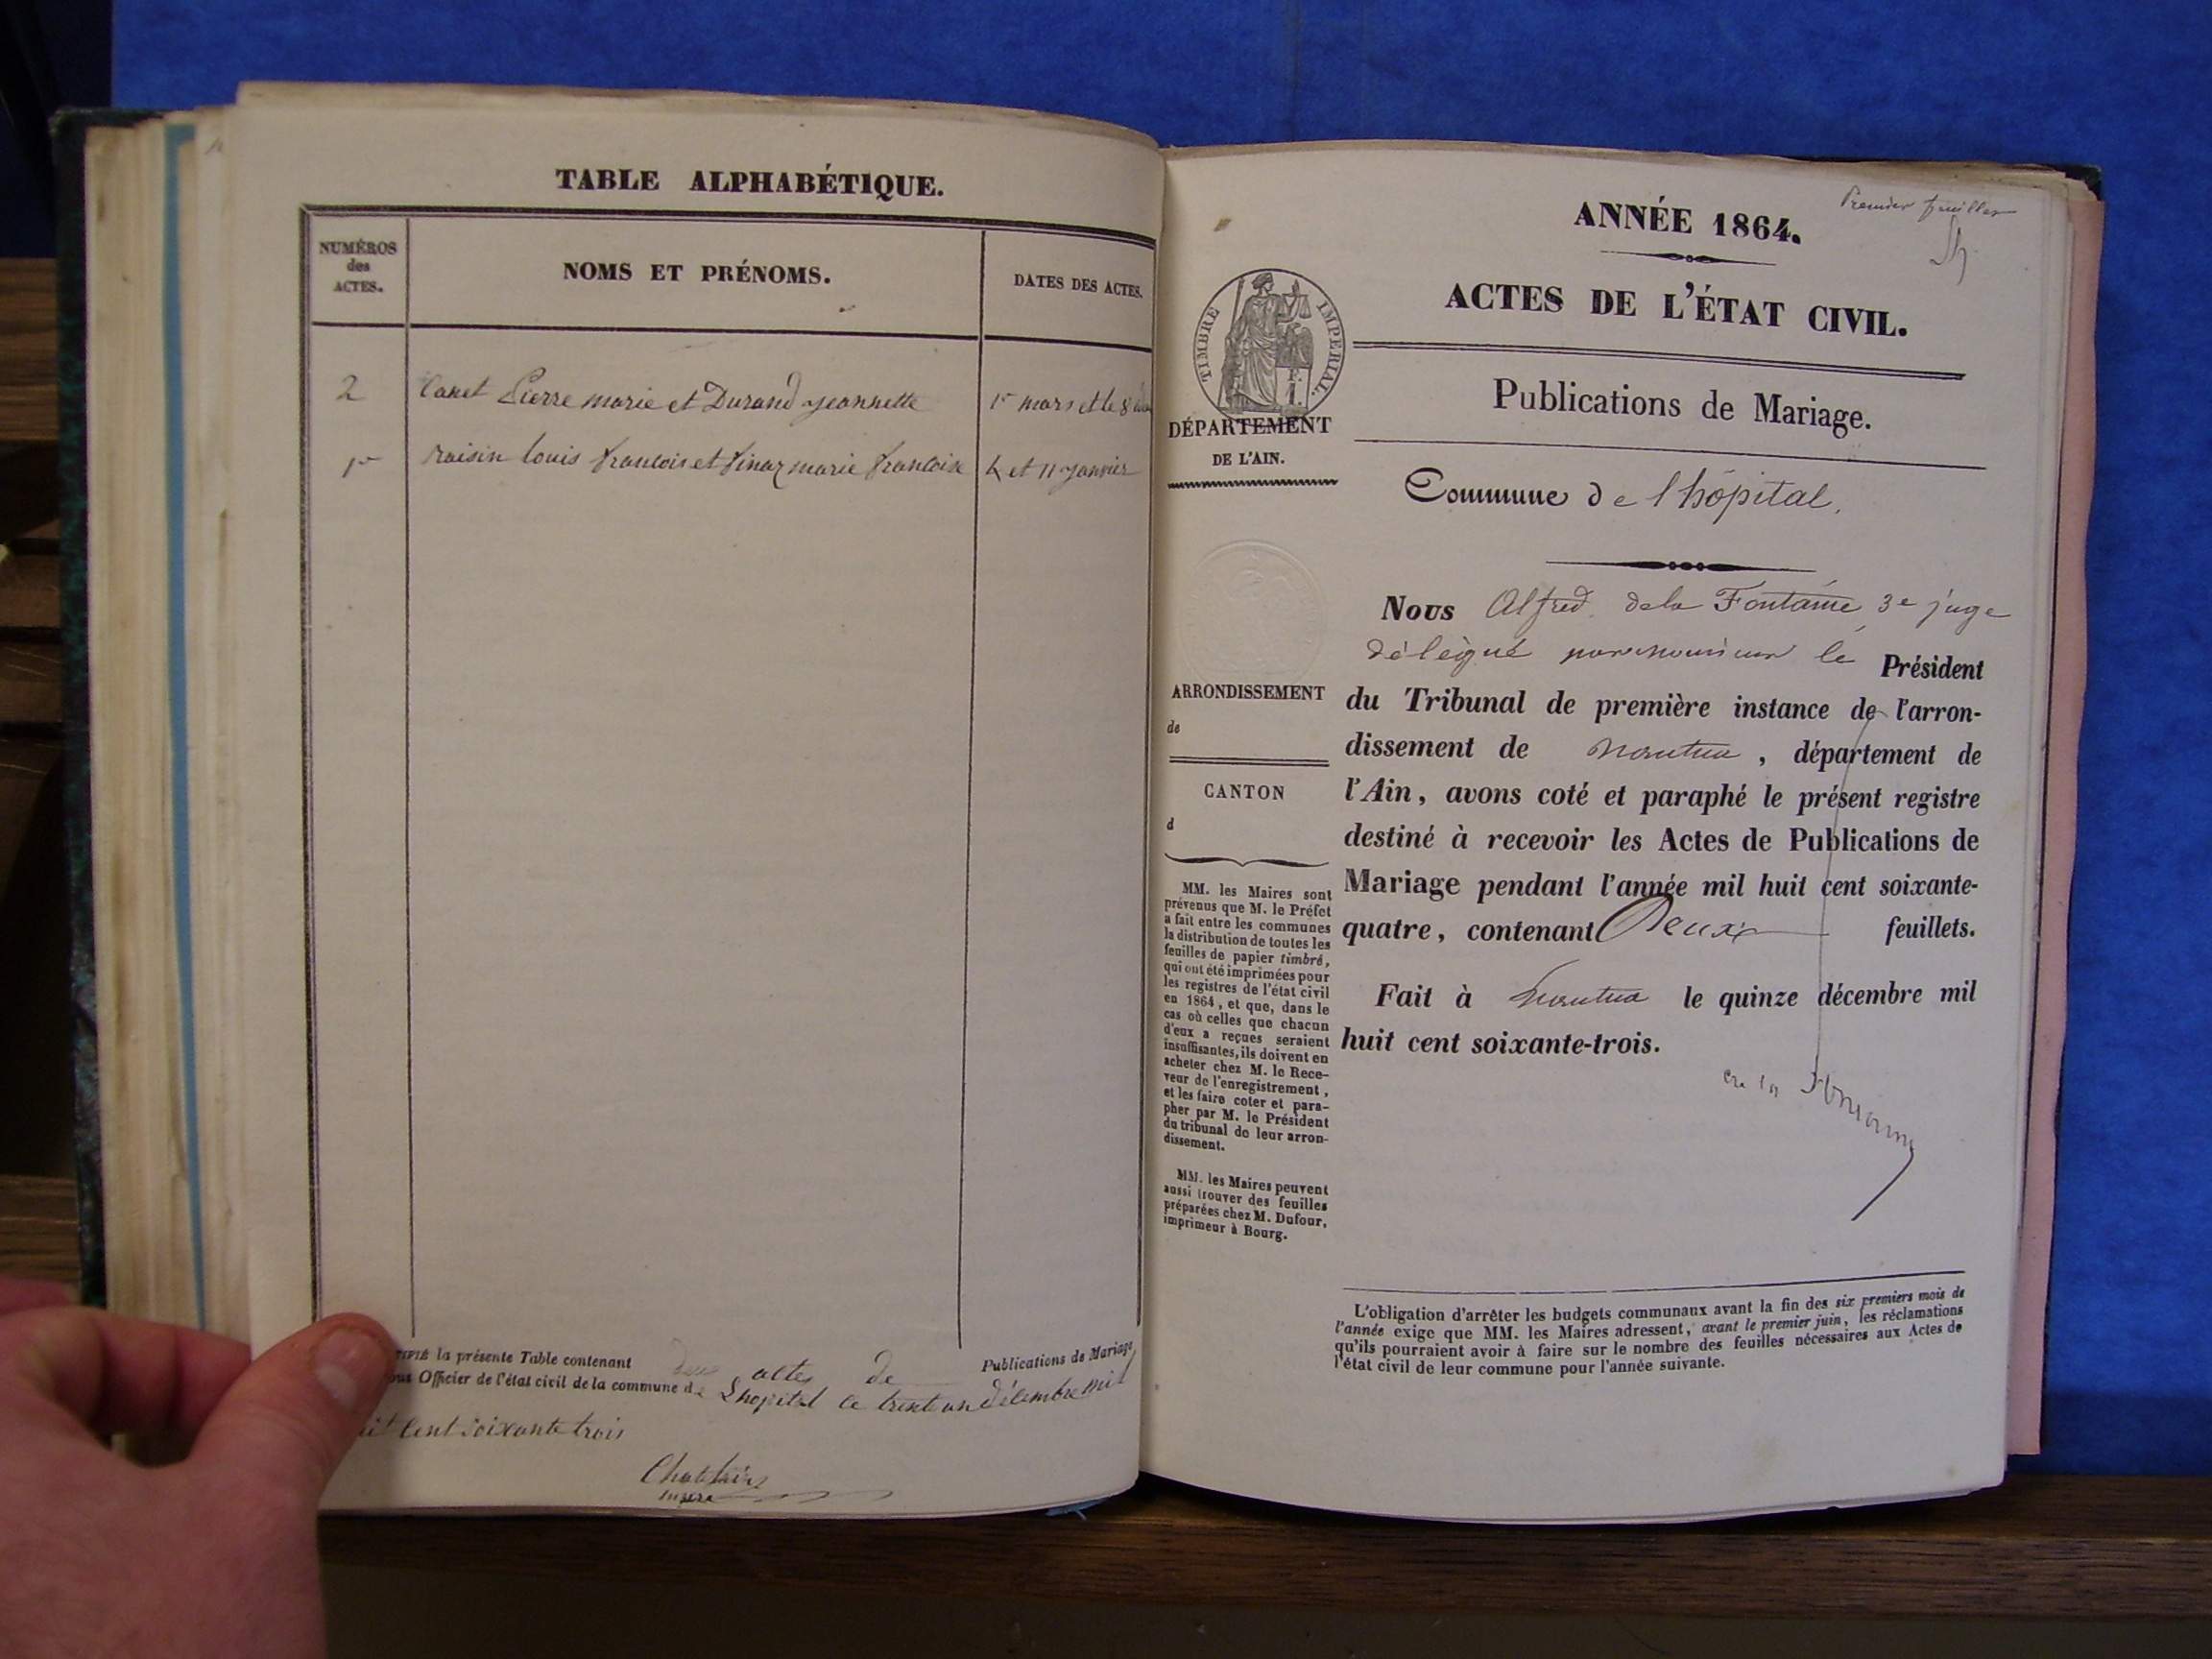 TABLE ALPHABÉTIQUE.
NUMÉROS
des
ACTES.
NOMS ET PRÉNOMS.
DATES DES ACTES.
2 Canet Pierre marie et Durand jeannette 1er mars et le 8
1er raisin louis francois et finaz marie francoise 4 et 11 janvier
la présente Table contenant deux actes de Publications de Mariage
Officier de l'état civil de la commune de Lhopital le trente un décembre mil
cent soixante trois
Chatelain
maire
Premier feuillet
ANNÉE 1864.
ACTES DE L'ÉTAT CIVIL.
Publications de Mariage.
Commune de l'hôpital.
TIMBRE IMPERIAL.
1 F.
DÉPARTEMENT
DE L'AIN.
ARRONDISSEMENT
de
CANTON
d
MM. les Maires sont
prévenus que M. le Préfet
a fait entre les communes
la distribution de toutes les
feuilles de papier timbré,
qui ont été imprimées pour
les registres de l'état civil
en 1864, et que, dans le
cas où celles que chacun
d'eux a reçues seraient
insuffisantes, ils doivent en
acheter chez M. le Rece-
veur de l'enregistrement,
et les faire coter et para-
pher par M. le Président
du tribunal de leur arron-
dissement.
MM. les Maires peuvent
aussi trouver des feuilles
préparées chez M. Dufour,
imprimeur à Bourg.
Nous Alfred dela Fontaine, 3e juge
délégué par monsieur le Président
du Tribunal de première instance de l'arron-
dissement de nantua, département de
l'Ain, avons coté et paraphé le présent registre
destiné à recevoir les Actes de Publications de
Mariage pendant l'année mil huit cent soixante-
quatre, contenant Deux feuillets.
Fait à nantua le quinze décembre mil
huit cent soixante-trois.
L'obligation d'arrêter les budgets communaux avant la fin des six premiers mois de
l'année exige que MM. les Maires adressent, avant le premier juin, les réclamations
qu'ils pourraient avoir à faire sur le nombre des feuilles nécessaires aux Actes de
l'état civil de leur commune pour l'année suivante.